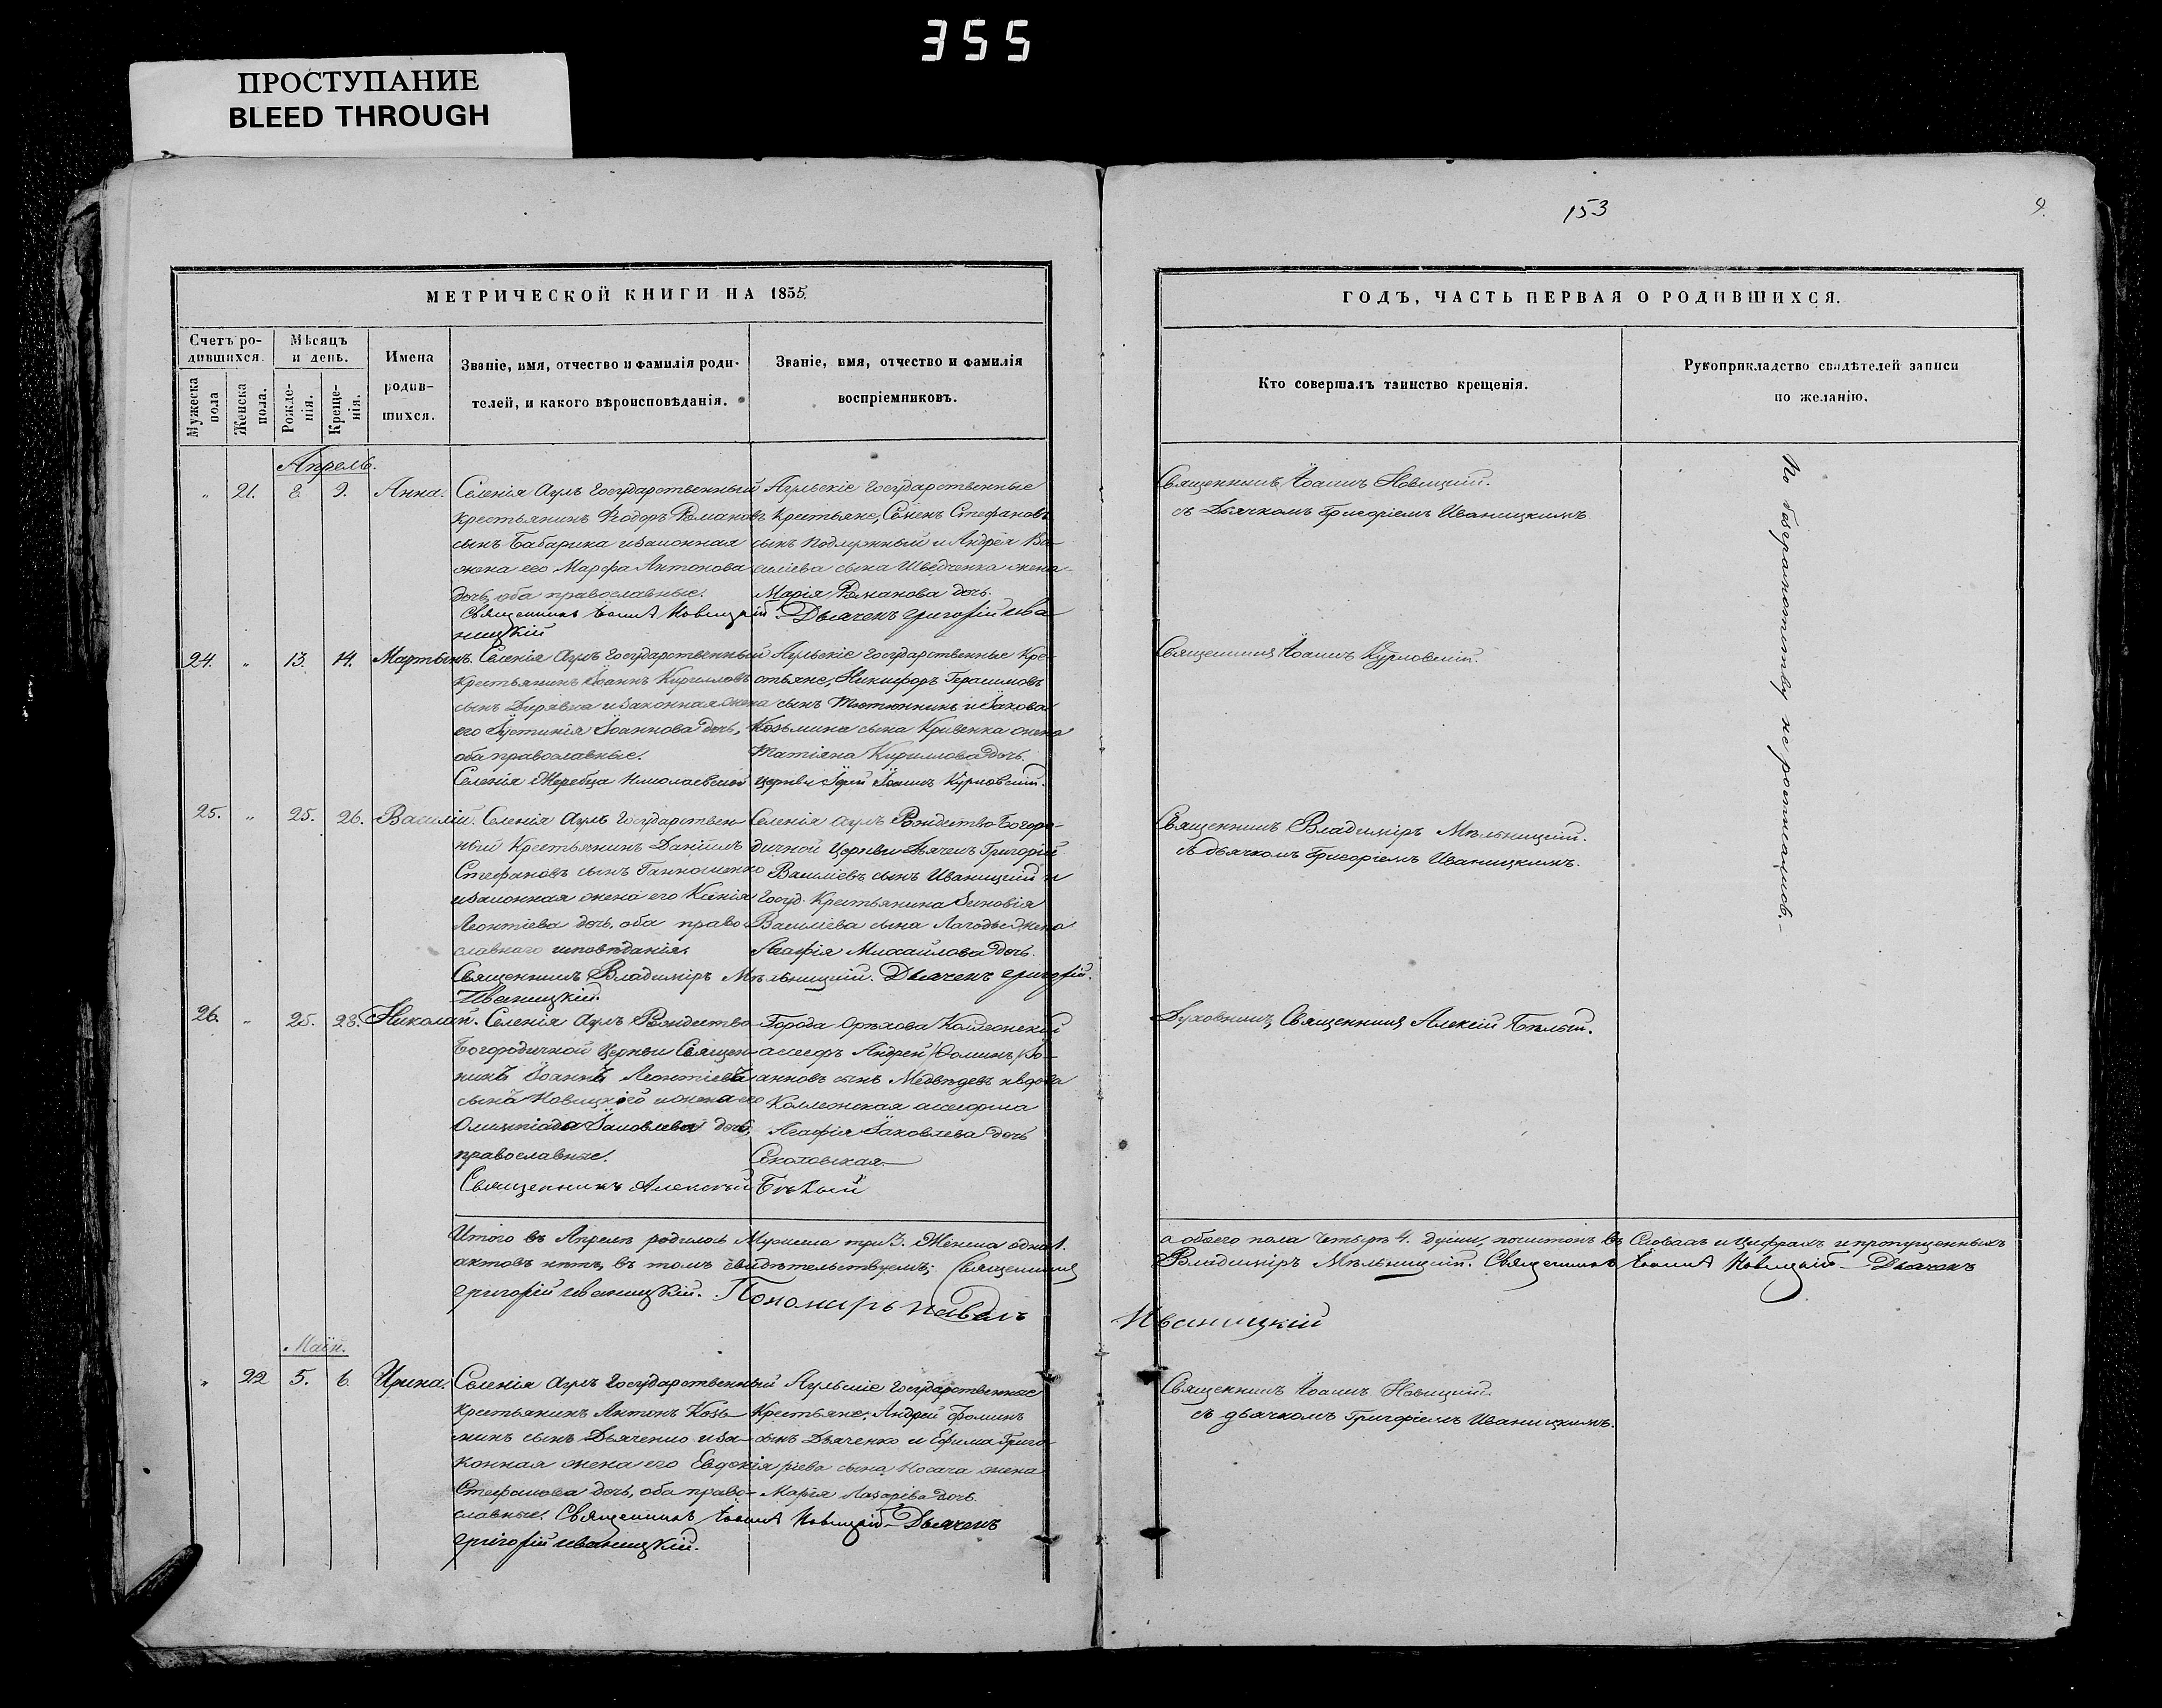 355
ПРОСТУПАНИЕ
BLEED THROUGH
153
9.
МЕТРИЧЕСКОЙ КНИГИ НА 1855
ГОДЪ, ЧАСТЬ ПЕРВАЯ О РОДИВШИХСЯ.
Счетъ ро-
дившихся.
Мужеска
пола
Женска
пола.
Мѣсяцъ
и день.
Рожде-
нія.
Креще-
нія.
Имена
родив-
шихся.
Званіе, имя, отчество и фамилія роди-
телей, и какого вѣроисповѣданія.
Званіе, имя, отчество и фамилія
воспріемниковъ.
Кто совершалъ таинство крещенія.
Рукоприкладство свидѣтелей записи
по желанію.
Апрель.
„ 21. 8. 9. Анна.
Селенія Аулъ Государственный
Крестьянинъ Ѳеодоръ Романовъ
сынъ Бабарика и законная
жена его Марфа Антонова
дочь, оба православные.
Аульскіе Государственные
Крестьяне, Семенъ Стефановъ
сынъ и Андрея Ва-
силіева сына Шведченка жена
Марія Романова дочь.
Священникъ Іоаннъ Новицкій Дьячекъ Григорій Ива
ницкій
Священникъ Іоаннъ Новицкій.
съ Дьячкомъ Григоріемъ Иваницкимъ
24. „ 13. 14. Мартынъ.
Селенія Аулъ Государственный
Крестьянинъ Іоаннъ Кирилловъ
сынъ Дирявка и законная жена
его Іустинія Іоаннова дочь,
оба православные.
Аульскіе Государственные Кре-
стьяне, Никифоръ Герасимовъ
сынъ Тютюнникъ и Іакова
Козьмина сына Кривенка жена
Татіяна Кириллова дочь.
Селенія Жеребца Николаевской церкви Іерей Іоаннъ Курловскій.
Священникъ Іоаннъ Курловскій.
25. „ 25. 26. Василій.
Селенія Аулъ Государствен-
ный Крестьянинъ Даніилъ
Стефановъ сынъ
и законная жена его Ксенія
Леонтіева дочь, оба право-
славнаго исповѣданія.
Селенія Аулъ Рождество-Богоро-
дичной Церкви Дьячекъ Григорій
Василіевъ сынъ Иваницкій и
Госуд. Крестьянина Зиновія
Василіева сына жена
Агафія Михайлова дочь.
Священникъ Владиміръ Мѣльницкій. Дьячекъ Григорій.
Иваницкій.
Священникъ Владиміръ Мѣльницкій.
съ дьячкомъ Григоріемъ Иваницкимъ.
26. „ 25. 28. Николай.
Селенія Аулъ Рождество
Богородичной Церкви Священ-
никъ Іоаннъ Леонтіевъ
сына Новицкого и жена его
Олимпіада Іаковлева дочь,
православные.
Города Орѣхова Коллежскій
ассесоръ Андрей Іо-
анновъ сынъ Медвѣдевъ и вдова
Коллежская ассесорша
Агафія Іаковлева дочь
Священникъ Алексѣй Бѣлый
Духовникъ, Священникъ Алексій Бѣлый.
По безграмотству не росписались.-
Итого въ Апрелѣ родилось Мужеска три 3. Женска одна 1.
а обоего пола четыре 4. души, почистокъ въ Словахъ и Цифрахъ и пропущенныхъ
актовъ нѣтъ, въ томъ свидѣтельствуемъ; Священникъ
Владиміръ Мѣльницкій. Священникъ Іоаннъ Новицкій Дьячекъ
Григорій Иваницкій. Пономарь Павелъ
Иваницкій
Маій.
„ 22 5. 6. Ирина.
Селенія Аулъ Государственный
Крестьянинъ Антонъ Козь-
минъ сынъ Дьяченко и за-
конная жена его Евдокія
Стефанова дочь, оба право-
славные.
Аульскіе Государственные
Крестьяне; Андрей Фоминъ
сынъ Дьяченко и Ефима Григо-
ріева сына Носача жена
Марія Лазарева дочь.
Священникъ Іоаннъ Новицкій Дьячекъ
Григорій Иваницкій.
Священникъ Іоаннъ Новицкій.
съ дьячкомъ Григоріемъ Иваницкимъ.